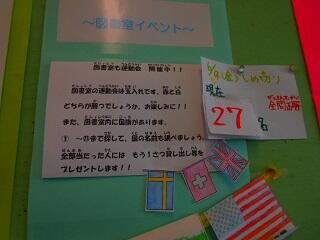 ～図書室イベント～
図書室も運動会 開催中！！
図書室の運動会は玉入れです。赤と白
どちらが勝つでしょうか、お楽しみに！！
また、図書室内に国旗があります。
① ～㉑まで探して、国の名前も調べましょう。
全部当たった人には もう１さつ貸し出し券を
プレゼントします！！
(金)しめ切り
現在
27名
全問正解